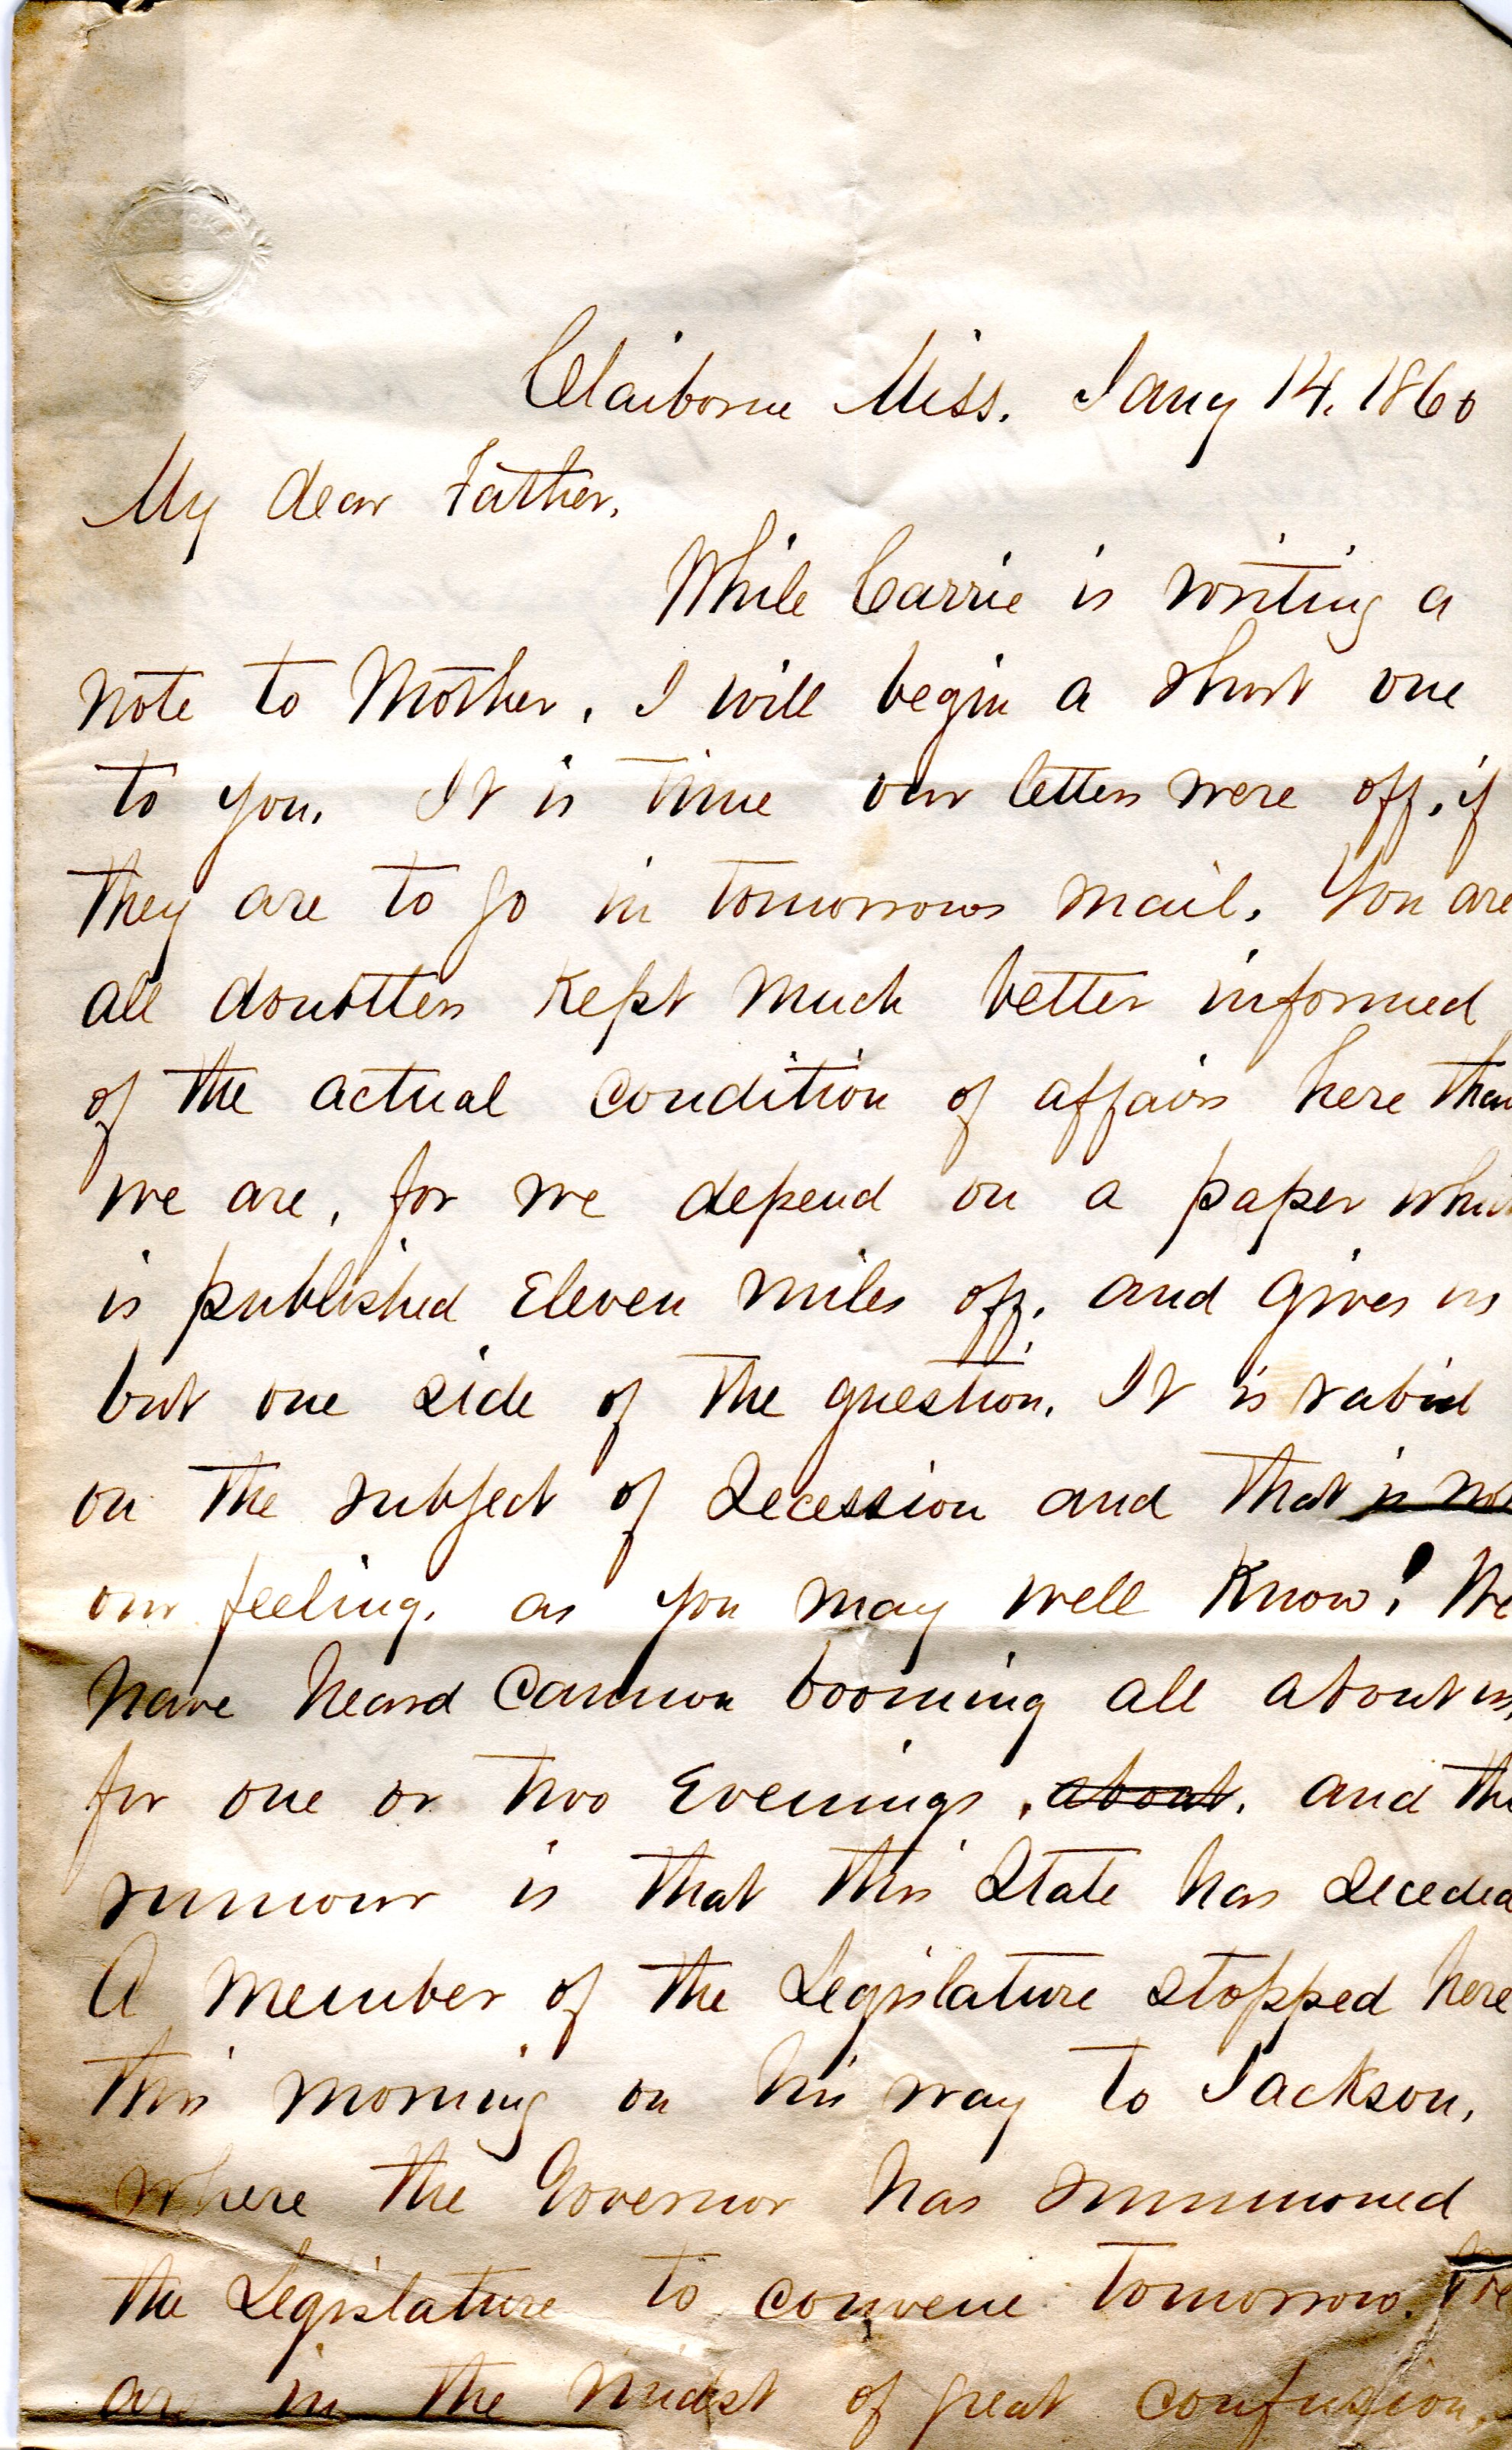 Claiborne Miss. Jany 14. 1860
My dear Father.
While Carrie is writing a
note to Mother, I will begin a short one
to you. It is time our letters were off, if
they are to go in tomorrows mail. You are
all doubtless kept much better informed
of the actual condition of affairs here than
we are, for we depend on a paper which
is published Eleven miles off, and gives us
but one side of the question. It is rabid
on the subject of Secession and that is not
our feeling, as you may well know! We
have heard Cannon booming all about us,
for one or two Evenings, about, and the
rumour is that this State has seceded
A member of the Legislature stopped here
this morning on his way to Jackson,
where the Governor has summoned
the Legislature to convene tomorrow. We
are in the midst of great confusion,